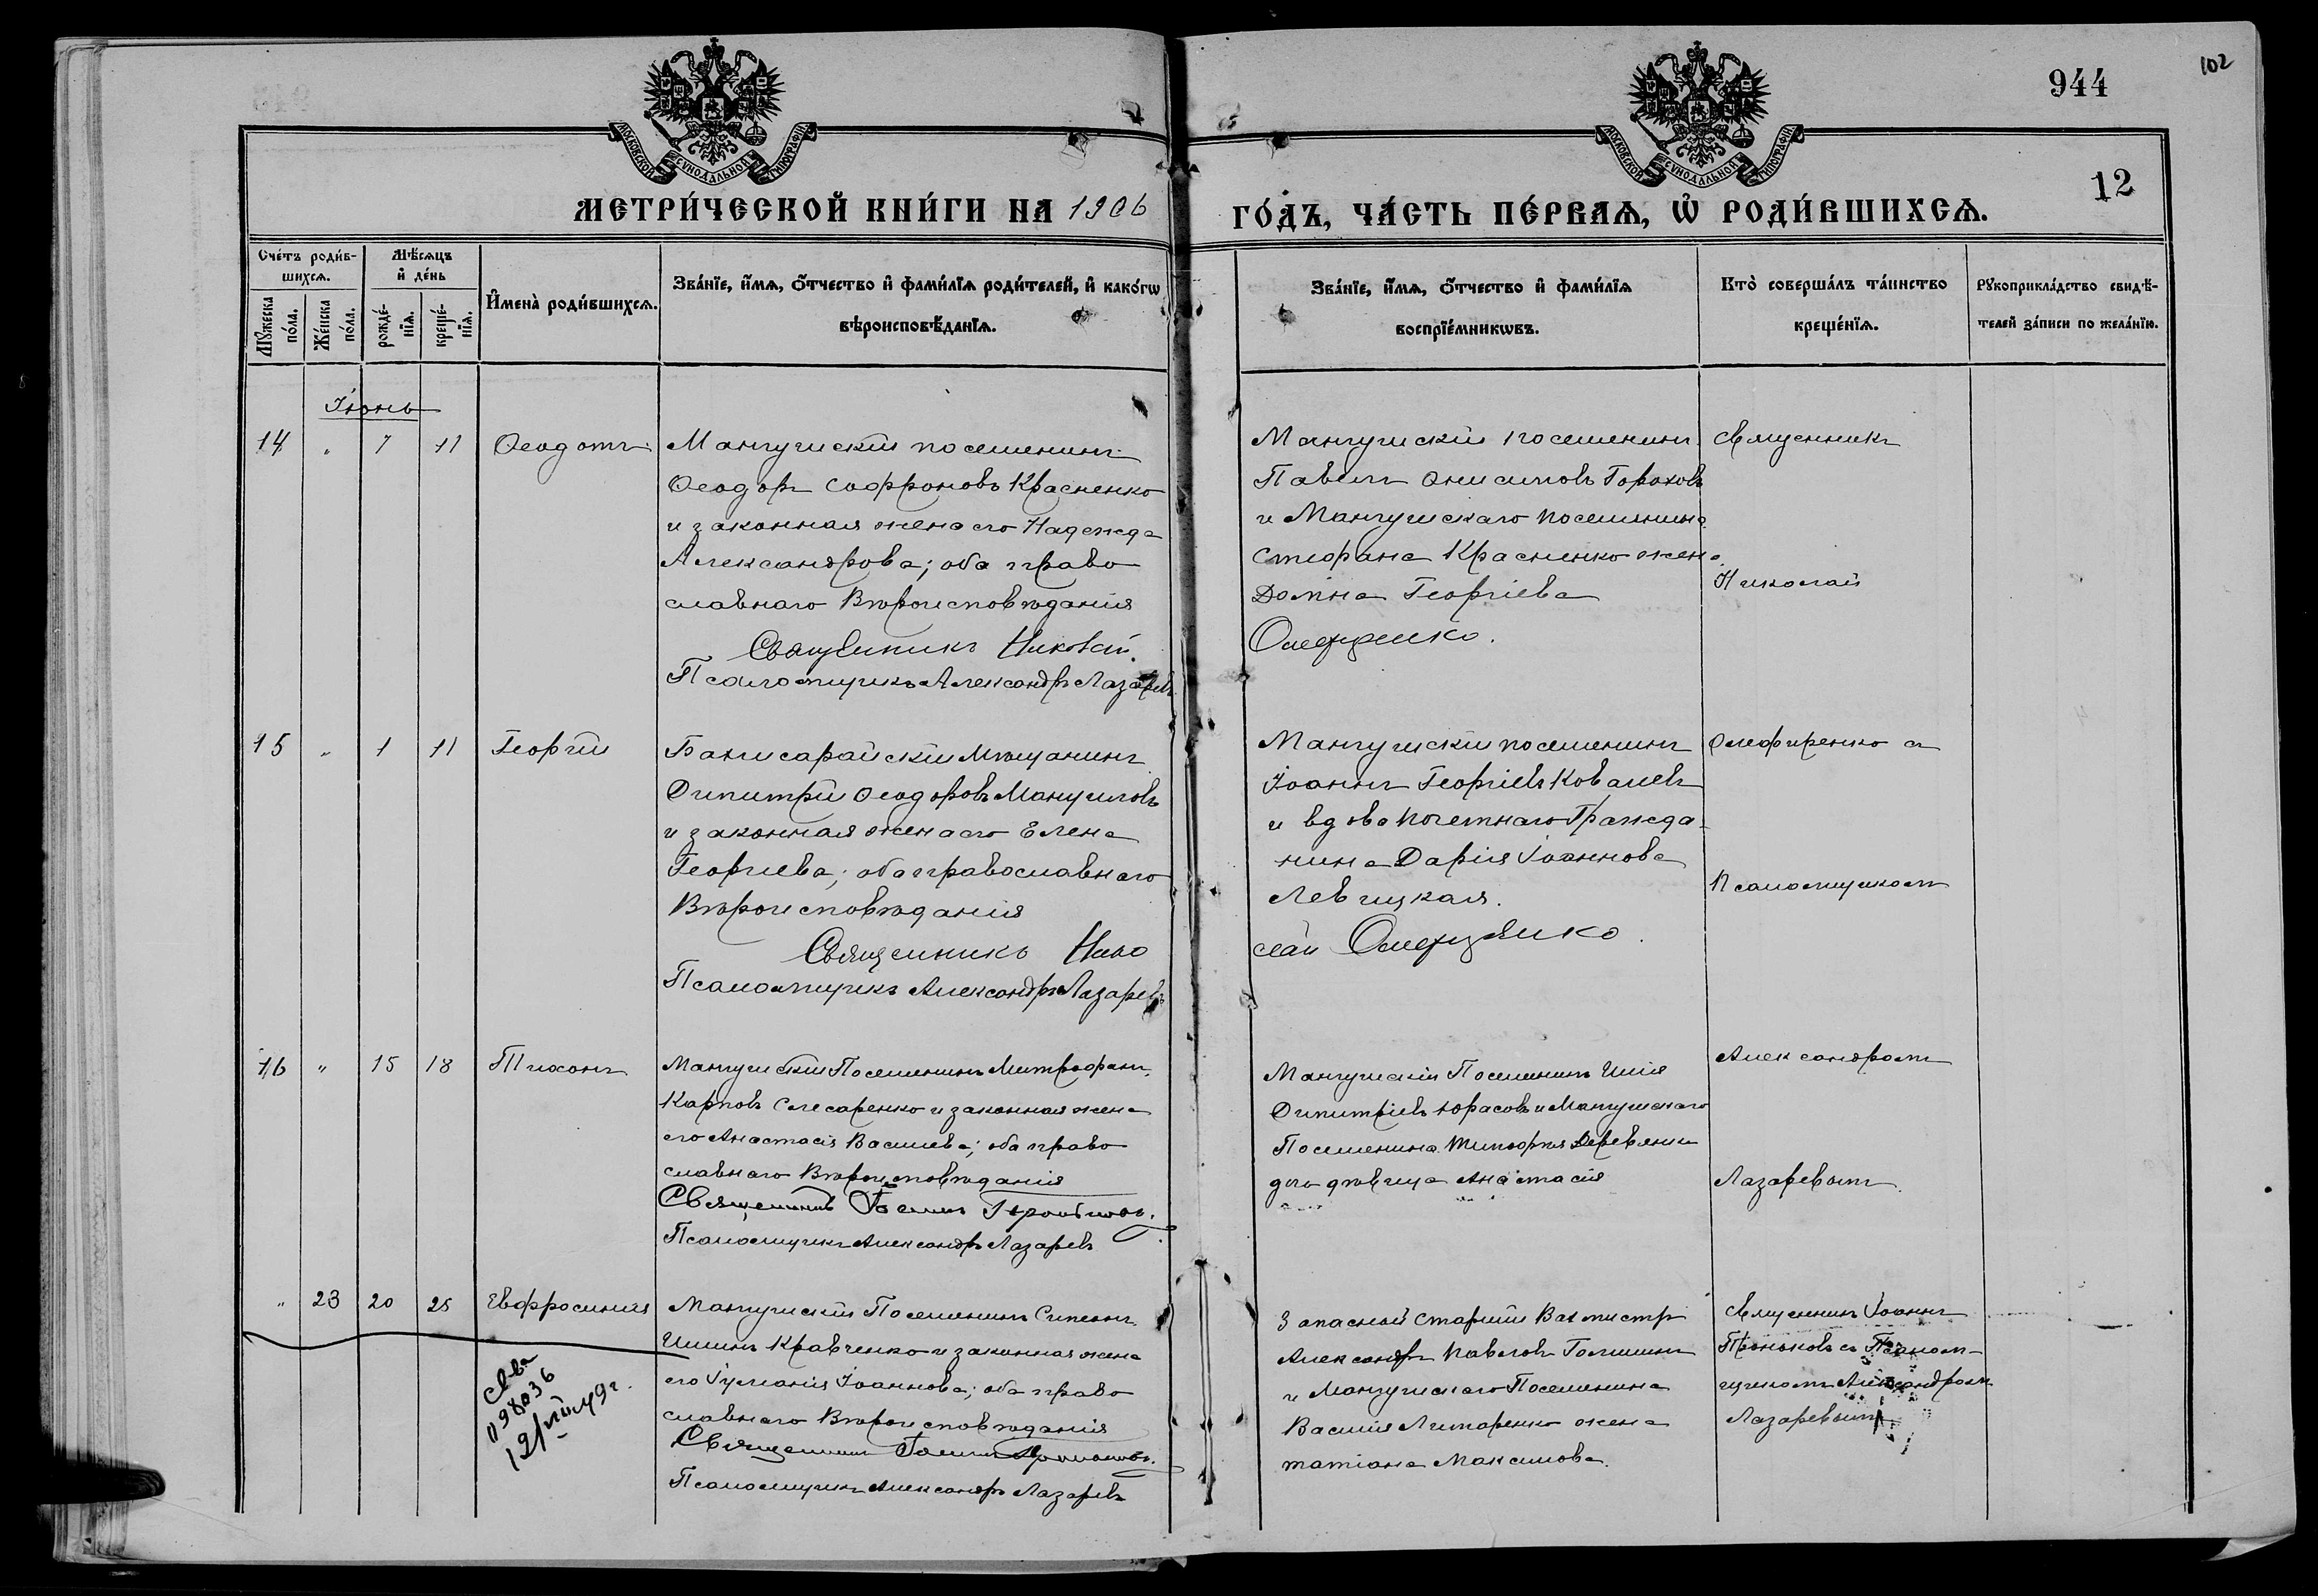 102
944
12
МОСКОВСКОЙ СѴНОДАЛЬНОЙ ТИПОГРАФІИ
МОСКОВСКОЙ СѴНОДАЛЬНОЙ ТИПОГРАФІИ
МЕТРИ́ЧЕСКОЙ КНИ́ГИ НА 1906
ГО́ДЪ, ЧА́СТЬ ПЕ́РВАѦ, Ѡ҆ РОДИ́ВШИХСѦ.
Сче́тъ роди́в-
шихсѧ.
Мꙋжеска по́ла.
Же́нска по́ла.
Мѣ́сѧцъ
и҆ де́нь
рожде́-
нїѧ.
креще́-
нїѧ.
И҆мена̀ роди́вшихсѧ.
Зва́нїе, и҆́мѧ, ѻ҆́тчество и҆ фами́лїѧ роди́телей, и҆ како́гѡ
вѣроисповѣ́данїѧ.
Зва́нїе, и҆́мѧ, ѻ҆́тчество и҆ фами́лїѧ
воспрїе́мникѡвъ.
Кто̀ соверша́лъ та́инство
креще́нїѧ.
Рꙋкоприкла́дство свидѣ́-
телей за́писи по жела́нїю.
Іюнь
14 " 7 11 Ѳеодотъ
Мангушскій поселенинъ
Ѳеодоръ Софроновъ Красненко
и законная жена его Надежда
Александрова; оба право
славнаго Вѣроисповѣданія
Священникъ Николай
Псаломщикъ Александръ Лазаревъ
Мангушскій поселенинъ
Павелъ Онисимовъ Гороховъ
и Мангушскаго поселянина
Стефана Красненко жена
Домна Георгіева
Олефиренко.
Священникъ
Николай
15 " 1 11 Георгій
Бахчисарайскій Мѣщанинъ
Димитрій Ѳеодоровъ Мануиловъ
и законная жена его Елена
Георгіева; оба православнаго
Вѣроисповѣданія
Священникъ Нико
Псаломщикъ Александръ Лазаревъ
Мангушскій поселенинъ
Іоаннъ Георгіевъ Ковалевъ
и вдова почетнаго Гражда-
нина Дарія Іоаннова
Левицкая.
лай Олефиренко.
Олефиренко съ
Псаломщикомъ
16 " 15 18 Тихонъ
Мангушскій Поселенинъ Митрофанъ
Карповъ Слесаренко и законная жена
его Анастасія Васильева; оба право
славнаго Вѣроисповѣданія
Священникъ Іоаннъ
Псаломщикъ Александръ Лазаревъ
Мангушскій Поселенинъ Илія
Димитріевъ Юрасовъ и Мангушскаго
Поселенина Тимофея Деревянки
дочь дѣвица Анастасія
Александромъ
Лазаревымъ.
" 23 20 25 Евфросинія
Мангушскій Поселенинъ Симеонъ
Ильинъ Кравченко и законная жена
его Іуліанія Іоаннова; оба право
славнаго Вѣроисповѣданія
Священникъ Іоаннъ
Псаломщикъ Александръ Лазаревъ
Запасной старшій Вахмистръ
Александръ Павловъ Голишинъ
и Мангушскаго Поселенина
Василія Литаренко жена
татіана Максимова.
Священникъ Іоаннъ
съ Псалом-
щикомъ Александромъ
Лазаревымъ
св-ва
098036